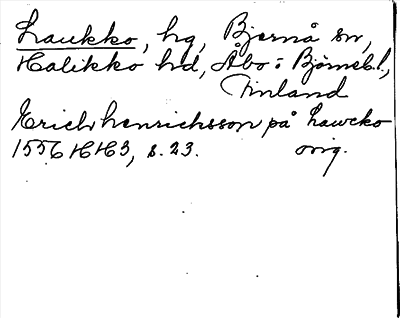 Laukko, hg, Bjernå sn,
Halikko hd, Åbo o Björneb.l,
Finland
Erich henrichsson på Lawcko
1556 HH3, s. 23. orig.